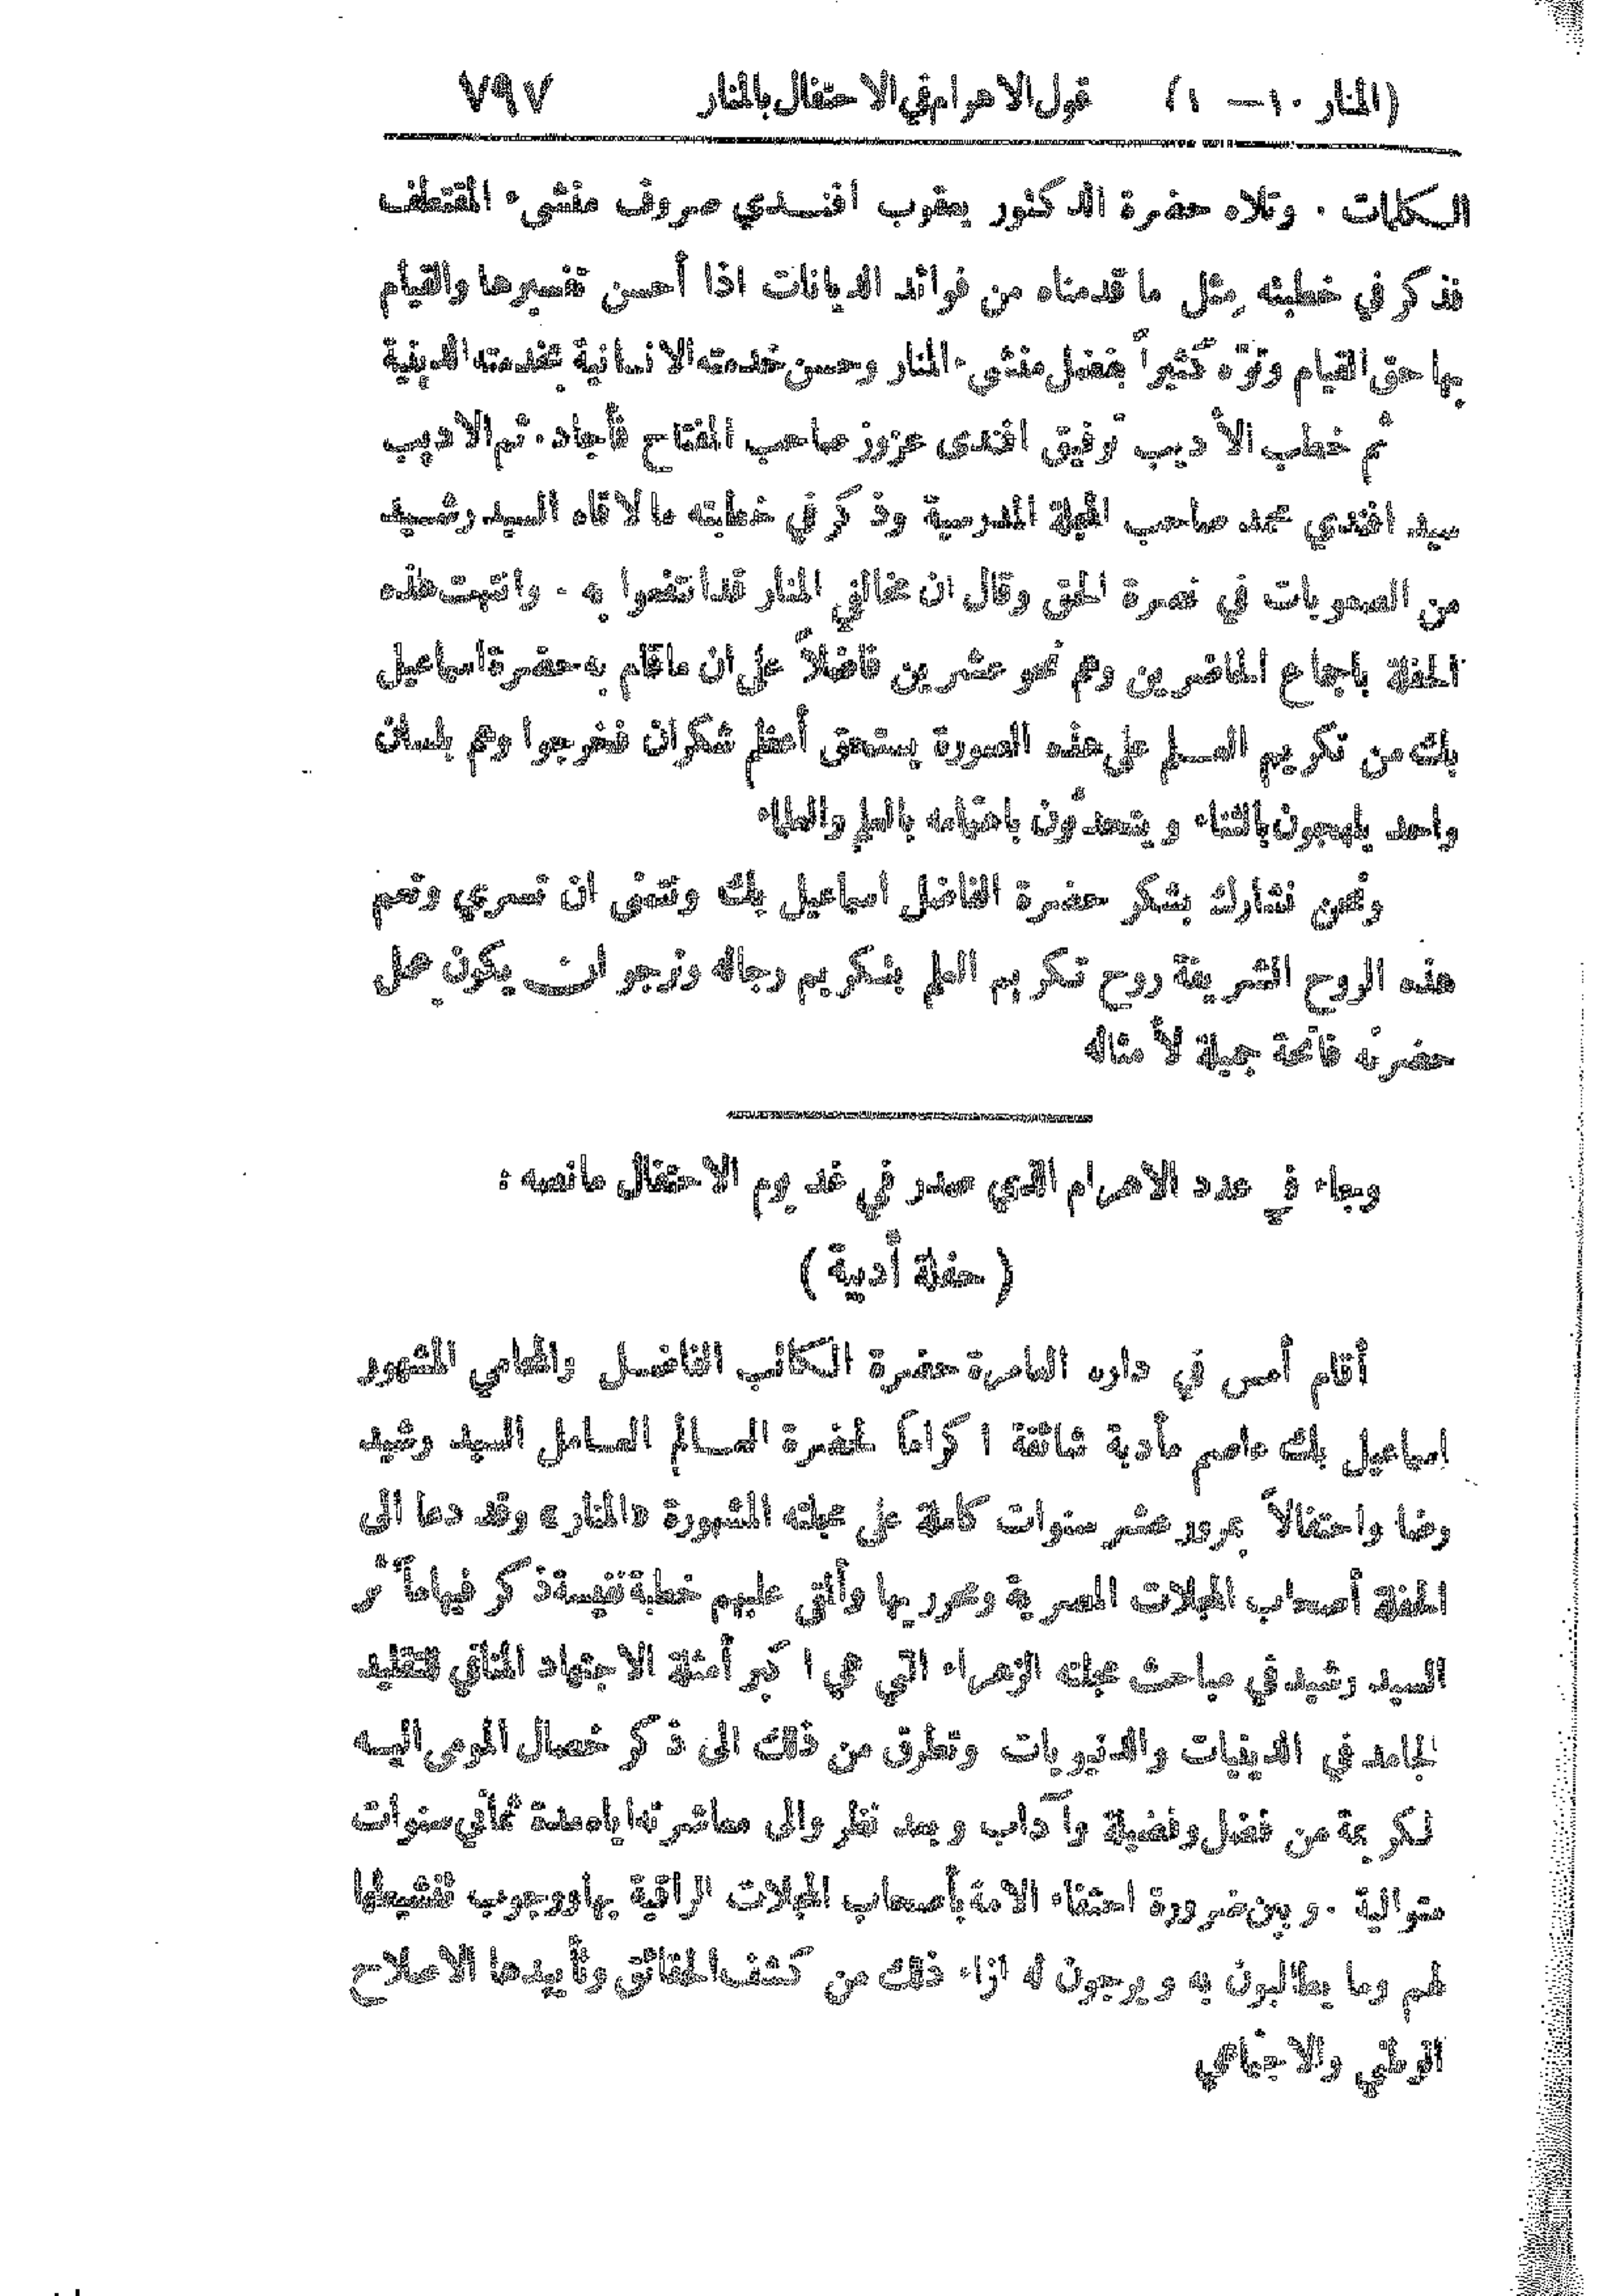 (المنار ١٠ — ١) قول الاهرام في الاحتفال بالمنار ٧٩٧
الكلمات . وتلاه حضرة الدكتور يعقوب افندي صروف منشىء المقتطف
فذكر في خطبته مثل ما قدمناه من فوائد الديانات اذا أحسن تفسيرها والقيام
بها حق القيام ونوّه كثيراً بفضل منشىء المنار وحسن خدمته الانسانية بخدمته الدينية
ثم خطب الأديب توفيق افندى عزوز صاحب المفتاح فأجاد. ثم الاديب
سيد افندي محمد صاحب المجلة المدرسية وذكر في خطبته ما لاقاه السيد رشيد
من الصعوبات في نصرة الحق وقال ان مخالفي المنار قد انتفعوا به . وانتهت هذه
الحفلة باجماع الحاضرين وهم نحو عشرين فاضلاً على ان ماقام به حضرة اسماعيل
بك من تكريم العلم على هذه الصورة يستحق أعظم شكران فخرجوا وهم بلسان
واحد يلهجون بالثناء ويتحدّثون باهتمامه بالعلم والعلماء
ونحن نشارك بشكر حضرة الفاضل اسماعيل بك ونتمنى ان تسري وتعم
هذه الروح الشريفة روح تكريم العلم بتكريم رجاله ونرجو ان يكون عمل
حضرته فاتحة جميلة لأمثاله
وجاء في عدد الاهرام الذي صدر في غد يوم الاحتفال مانصه :
( حفلة أدبية )
أقام أمس في داره العامرة حضرة الكاتب الفاضل والمحامي المشهور
إسماعيل بك عاصم مأدبة شائقة اكراماً لحضرة العالم العامل السيد رشيد
رضا واحتفالاً بمرور عشر سنوات كاملة على مجلته المشهورة «المنار» وقد دعا الى
الحفلة أصحاب المجلات المصرية ومحرريها وألقى عليهم خطبة نفيسة ذكر فيها مآثر
السيد رشيد في مباحث مجلته الزهراء التي هي اكبر أمثلة الاجتهاد المنافي للتقليد
الجامد في الدينيات والدنيويات وتطرق من ذلك الى ذكر خصال المومى اليه
الكريمة من فضل وفضيلة وآداب وبعد نظر والى معاشرته اياه مدة ثماني سنوات
متوالية . وبين ضرورة احتفاء الامة بأصحاب المجلات الراقية بها ووجوب تنشيطها
لهم وما يطالبون به ويرجون له ازاء ذلك من كشف الحقائق وتأييدها الاصلاح
الوطني والاجتماعي